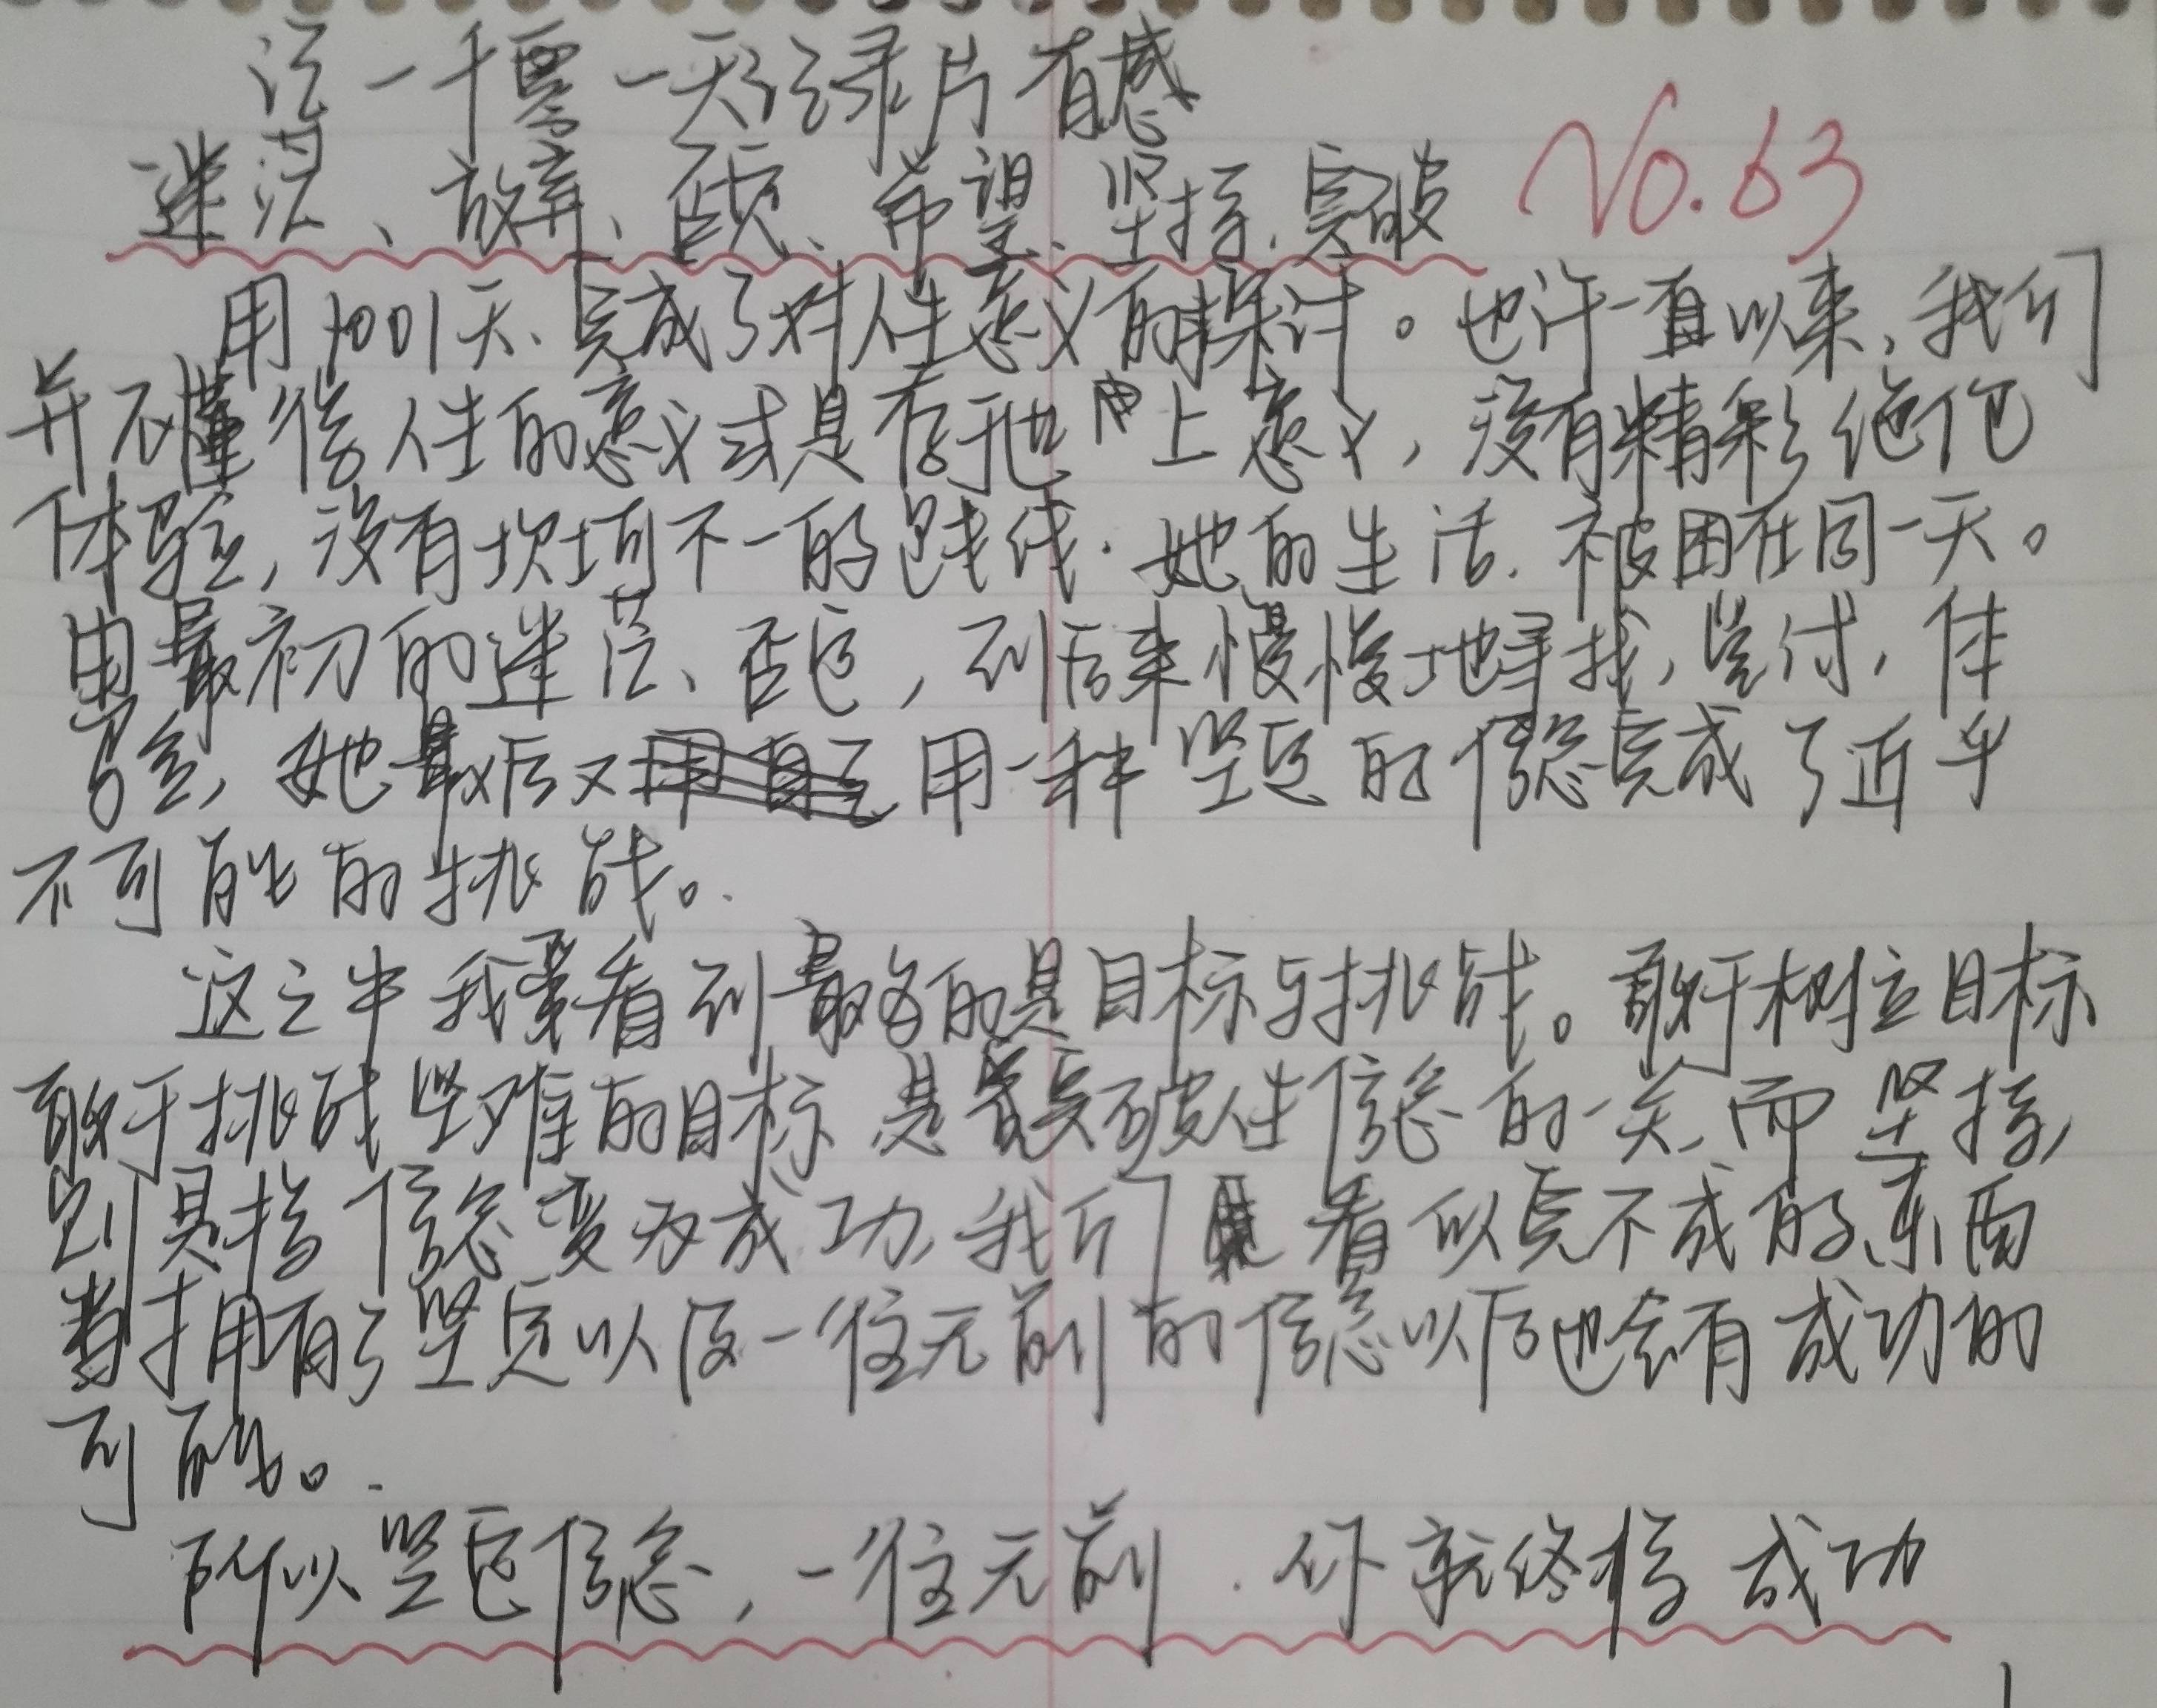 记一千零一天记录片有感
迷茫、放弃、 、希望、坚持、突破
No.63
用1001天、完成了对人生意义的探讨。也许一直以来,我们
并不懂得人生的意义或是存于世 上意义,没有精彩绝伦
体验,没有坎坷不一的 线.她的生活.被困在同一天。
由最初的迷茫、 ,到后来慢慢地寻找,尝试,体
验,她最后又 用一种坚定的信念完成了近乎
不可能的挑战。
这之中我 看到最多的是目标与挑战。敢于树立目标
敢于挑战坚难的目标是 突破生信念的一关,而坚持,
则是将信念变为成功,我们 看似完不成的东西
当拥有了坚定以及一往无前的信念以后也会有成功的
可能。
所以坚定信念,一往无前.你就终将成功